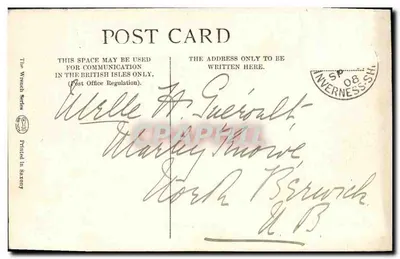 POST CARD
THIS SPACE MAY BE USED
FOR COMMUNICATION
IN THE BRITISH ISLES ONLY.
(Post Office Regulation).
THE ADDRESS ONLY TO BE
WRITTEN HERE.
SP
08
INVERNESS-SH.
The Wrench Series
Printed in Saxony
Melle H Guéroult
Marley Knowe,
North Berwick
N B